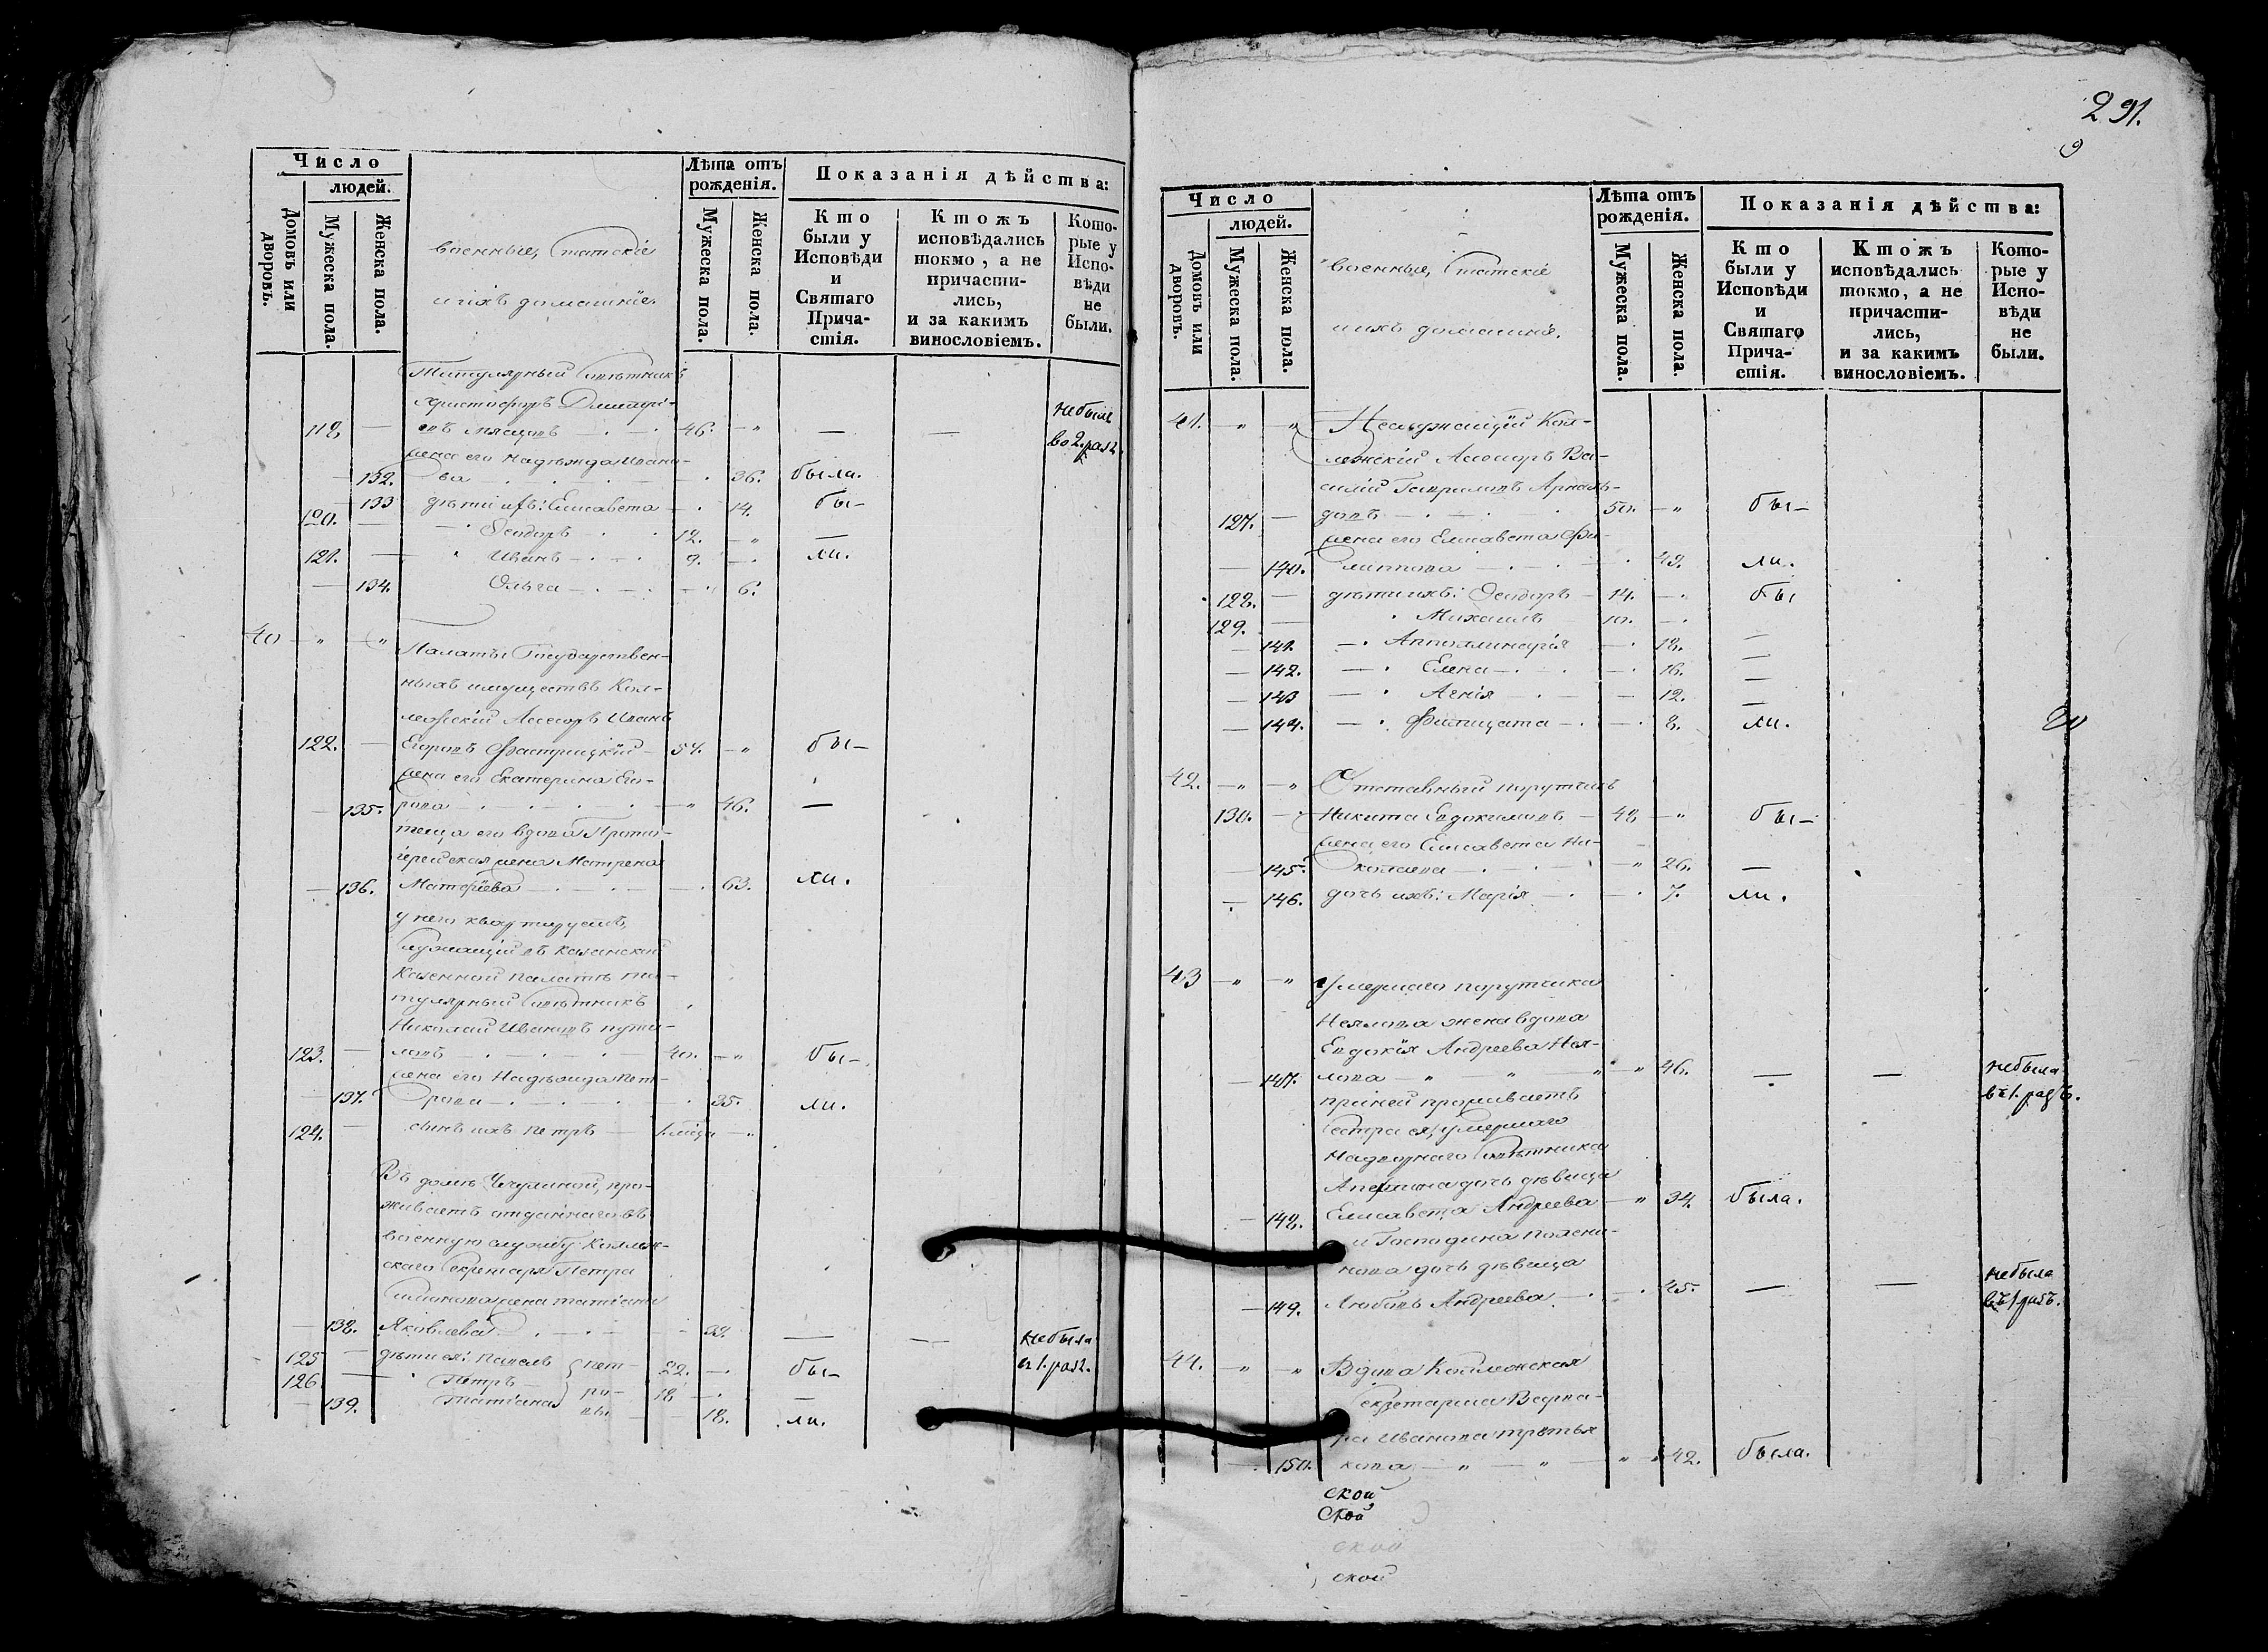 Число
людей.
Домовъ или дворовъ.
Мужеска пола.
Женска пола.
военные, статскіе
и ихъ домашніе.
Лѣта отъ рожденія.
Мужеска пола.
Женска пола.
Показанія дѣйства:
Кто были у Исповѣди и Святаго Причастія.
Ктожъ исповѣдались токмо, а не причастились, и за какимъ винословіемъ.
Которые у Исповѣди не были.
Титулярный Совѣтникъ
Христофоръ Дмитрі-
119. — евъ — 46. — " — — небылъ во 2. разъ
жена его Надежда Ивано-
— 132. ва — 36. была.
— 133 дѣти ихъ: Елисавета — 14. бы-
120. — Ѳеодоръ — 12. — " —
121. — Иванъ — 9. — ли.
— 134. Ольга — 6.
40 — " — "
Палаты Государствен-
ныхъ имуществъ Кол-
лежскій Ассесоръ Иванъ
122. — Егоровъ — 57. — " бы-
жена его Екатерина Его-
— 135. рова — " 46. —
теща его вдова Прото-
іерейская жена Матрена
— 136. Матѳіева — 63. ли.
у него квартируетъ,
служащій въ Казанской
Казенной Палатѣ ти-
тулярный Совѣтникъ
Николай Ивановъ Пути-
123. — ловъ — 40. — " бы-
жена его Надежда Пет-
— 137. рова — 35. ли.
124. — сынъ ихъ Петръ — — "
Въ домѣ про-
живаетъ отданнаго въ
военную службу Коллеж-
скаго Секретаря Петра
жена Татіана
— 138. Яковлева — 39. — — небыла въ 1. разъ.
125 — дѣти ея: Павелъ Пет- 22. — бы-
126 — Петръ ро- 18 — —
— 139. Татіана вы — 18. ли.
291.
9
Число
людей.
Домовъ или дворовъ.
Мужеска пола.
Женска пола.
военные, статскіе
и ихъ домашніе.
Лѣта отъ рожденія.
Мужеска пола.
Женска пола.
Показанія дѣйства:
Кто были у Исповѣди и Святаго Причастія.
Ктожъ исповѣдались токмо, а не причастились, и за какимъ винословіемъ.
Которые у Исповѣди не были.
41. — " — " Неслужащій Кол-
лежскій Ассесоръ Ва-
силій Гавриловъ Арналь-
127. — довъ — 50. — " бы-
жена его Елисавета Фи-
— 140. липпова — 43. ли.
128. — дѣти ихъ: Ѳеодоръ — 14. — бы
129. — Михаилъ — 10. —
— 141. Апполлинарія — 18. —
— 142. Елена — 16. —
— 143 Агнія — 12. —
— 144. Филицата — 8. ли.
42. — " — " Отставный порутчикъ
130. — Никита Евдокимовъ — 48 — " бы-
жена его Елисавета Ни-
— 145. колаева — " 26. —
— 146. дочь ихъ: Марія — 7. ли.
43 — " — " Умершаго порутчика
Неялова жена вдова
Евдокія Андреева Нея-
— 147. лова — " — " — " 46. — — небыла въ 1. разъ.
при ней проживаетъ
сестра ея, умершаго
Надворнаго Совѣтника
дочь дѣвица
— 148. Елисавета Андреева — " 34. была.
и Господина
дочь дѣвица
— 149. Любовь Андреева — 45. — — небыла въ 1. разъ.
44. — " — " Вдова Коллежская
Секретарша Варва-
ра Иванова Третья-
— 150. кова — " — " — " 42. была.
ской
ской
ской
ской